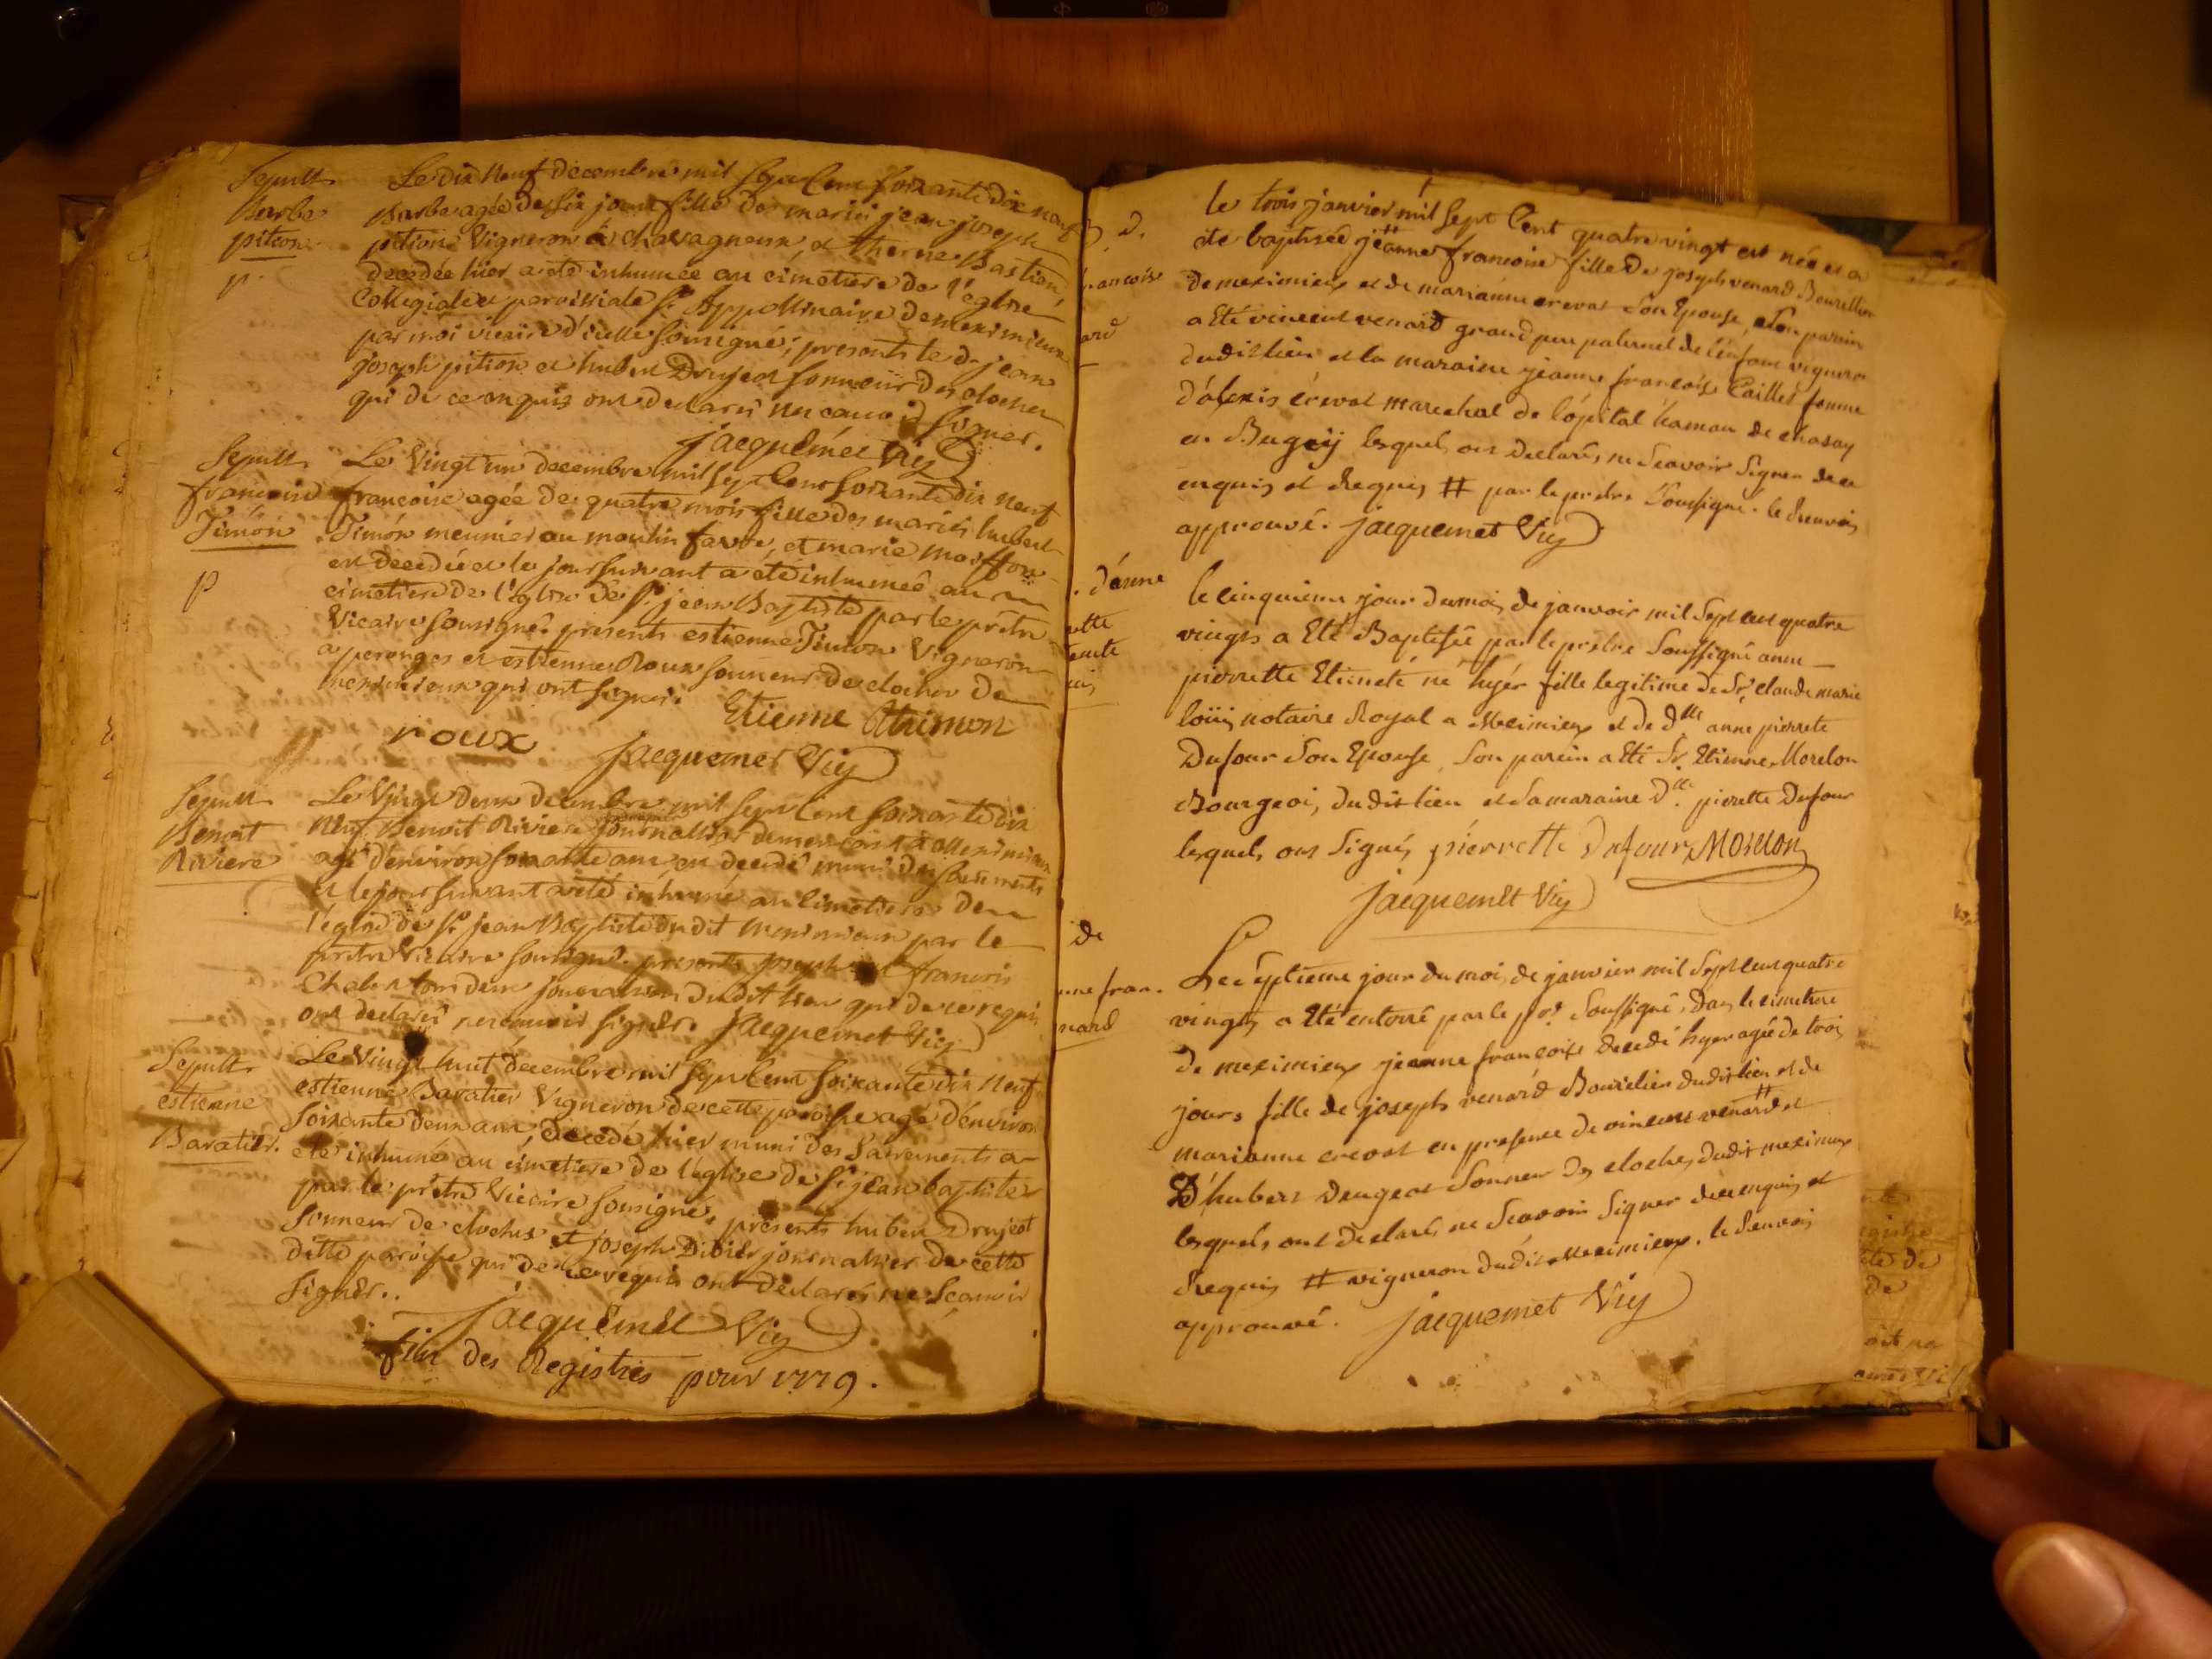 Sepult.
Barbe
pition
p.
Le dix neuf decembre mil sept cent soixante dix neuf
Barbe agée de six jours fille des mariés jean joseph
pition Vigneron à chavagneux, et therese Bastien,
decedée hier a eté inhumée au cimetiere de l'eglise
Collegiale et paroissiale St Appollinaire de meximieux
par moi vicaire d'icelle soussigné; presents le d. jean
joseph pition et hubert Drujeot sonneur des cloches
qui de ce enquis ont declarés ne scavoir signer.
jacquemet Vic
Sepult.
francoise
Timón
p
Le Vingt un decembre mil sept Cent soixante dix neuf
francoise agée de quatre mois fille des mariés hubert
Timón meunier au moulin favre, et marie
est decedée et le jour suivant a eté inhumeé au
cimetiere de l'eglise de St jean Baptiste par le prêtre
Vicaire soussigné. presents estienne Timon Vigneron
a perouges et estienne Roux sonneur de clocher de
meximieux qui ont signés.
Etienne thimon
roux
Jacquemet Vic
Sepult.
Benoit
Riviere
Le Vingt deux decembre mil sept Cent soixante dix
neuf Benoit Riviere journallier demeurant à Meximieux
agé d'environ soixante ans, est decedé muni des sacrements
et le jour suivant a eté inhumé au Cimetiere de
l'eglise de St jean Baptiste du dit Meximieux par le
prêtre Vicaire soussigné. presents joseph et francois
tous deux journaliers du dit lieu qui de ce requis
ont declarés ne scavoir signer. Jacquemet Vic
Sepult.
estienne
Baratier.
Le Vingt huit decembre mil sept Cent soixante dix neuf
estienne Baratier Vigneron de cette paroisse agé d'environ
soixante deux ans, decedé hier muni des sacrements a
eté inhumé au cimetiere de l'eglise de St jean baptiste
par le prêtre Vicaire soussigné, présents hubert Drujeot
sonneur de cloches et joseph Didier journallier de cette
ditte paroisse qui de ce requis ont declarés ne scavoir
signer..
jacquemet Vic
fin des Registres pour 1779.
B. D.
ancoise
ard
le trois janvier mil sept Cent quatre vingt est née et a
ete baptisée jeanne francoise fille de joseph venard Bourellier
de meximieux et de marianne crevat son Epouse, son parain
a Eté vincent venard grand pere paternel de l'enfant vigneron
dudit lieu et la maraine jeanne francoise Caillet femme
d'alexis crevat marechal de l'ôpital hameau de chasay
en Bugeÿ lesquels ont declarés ne scavoir signer de ce
enquis et Requis # par le pretre soussigné. le renvois
approuvé. jacquemet Vic
. d'anne
ette
le cinquieme jour du mois de janvoir mil sept cent quatre
vingts a Eté Baptisée par le pretre soussigné anne
pierrette Etienete né hyér fille legitime de Sr. claude marie
loüis notaire Royal a Meximieux et de dlle anne pierrete
Dufour son Epouse, son parein a Eté Sr. Etienne Morelon
Bourgeois, dudit lieu et sa maraine dlle pierette Dufour
lesquels ont signés pierrette dufour Morelon
jacquemet Vic
de
nne fran.
nard
Le séptieme jour du mois de janvier mil sept cent quatre
vingts, a Eté enterré par le ptre. soussigné, dans le cimetiere
de meximieux jeanne françoise decedé hyer agée de trois
jours fille de joseph venard Bourelier dudit lieu et de
marianne crevat en presence de vincent venard # et
D'hubert drugeat sonneur des cloches dudit meximieux
lesquels ont declarés ne scavoir signer de ce enquis et
Requis # vigneron dudit Meximieux. le renvois
approuvé. jacquemet Vic
de